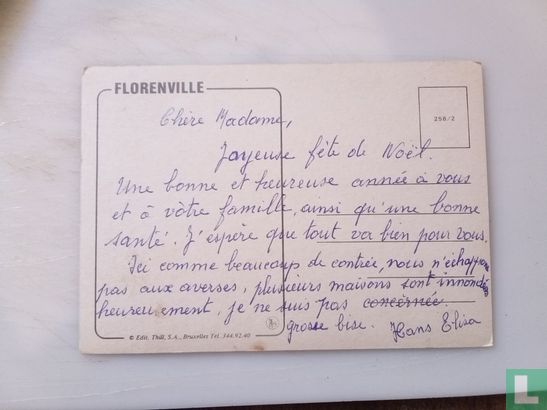 FLORENVILLE
258/2
Chère Madame,
Joyeuse fête de Noël.
Une bonne et heureuse année à vous
et à vôtre famille, ainsi qu'une bonne
santé. J'espère que tout va bien pour vous.
Ici comme beaucoup de contrée, nous n'échappons
pas aux averses, plusieurs maisons sont innondées
heureusement, je ne suis pas concernée.
grosse bise. Hans Elisa
© Edit. Thill, S.A., Bruxelles Tel. 344.92.40
LastDodo